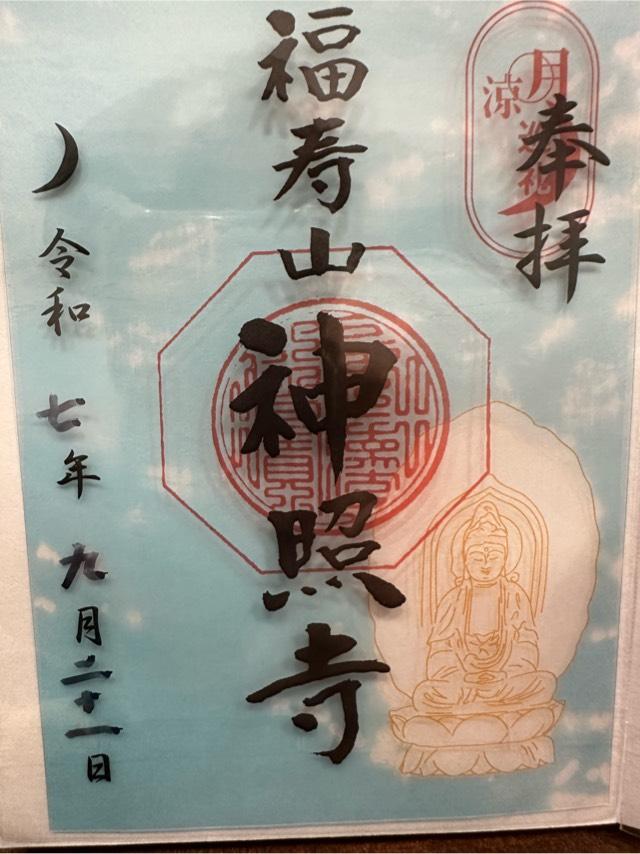 奉拝
月涼
福寿山神照寺
令和七年九月二十一日